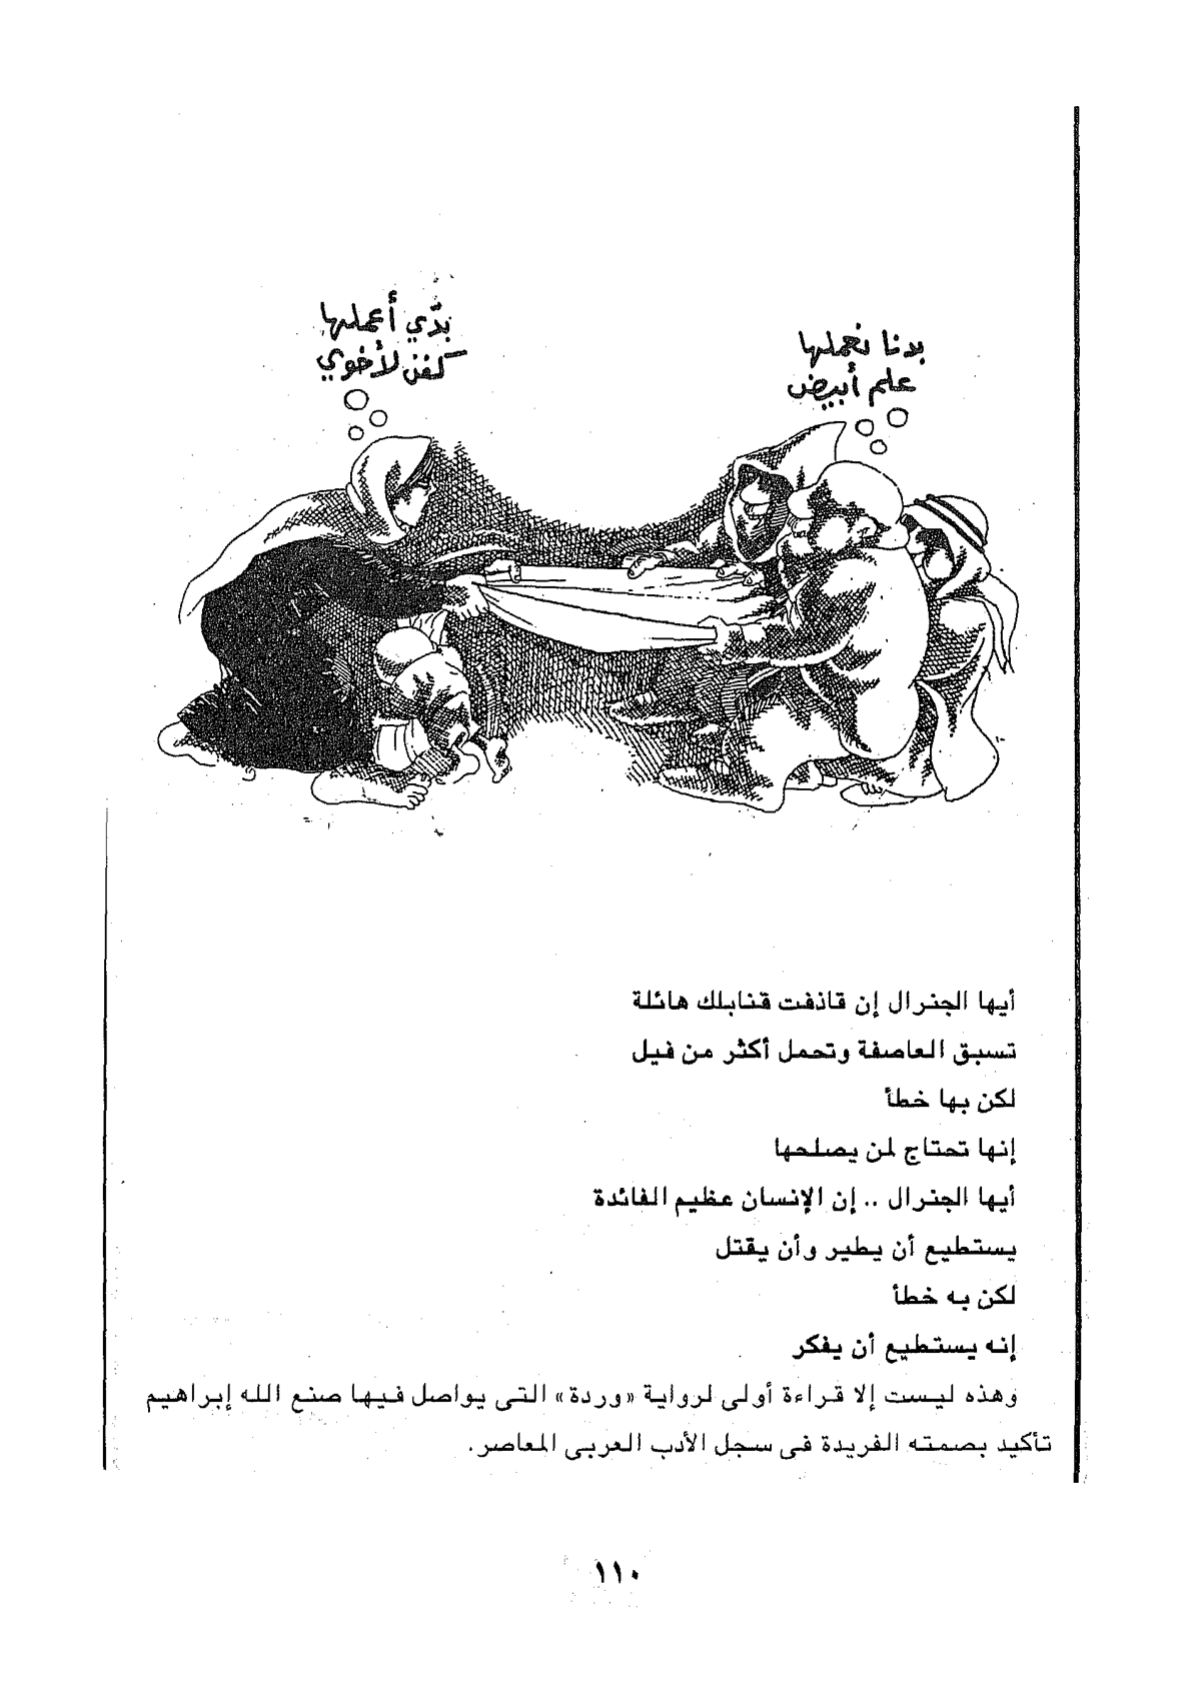 بدّي أعملها
كفن لأخوي
بدنا نعملها
علم أبيض
أيها الجنرال إن قاذفت قنابلك هائلة
تسبق العاصفة وتحمل أكثر من فيل
لكن بها خطأ
إنها تحتاج لمن يصلحها
أيها الجنرال .. إن الإنسان عظيم الفائدة
يستطيع أن يطير وأن يقتل
لكن به خطأ
إنه يستطيع أن يفكر
وهذه ليست إلا قراءة أولى لرواية «وردة» التى يواصل فيها صنع الله إبراهيم
تأكيد بصمته الفريدة فى سجل الأدب العربى المعاصر.
١١٠